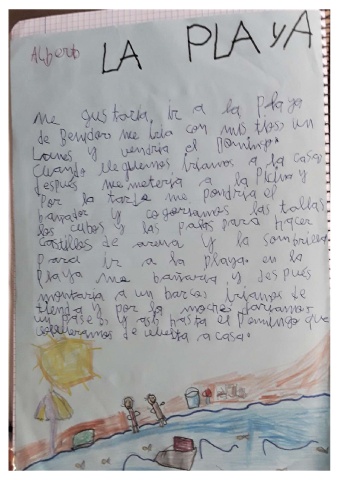 Alberto
LA PLAYA
me gustaría ir a la playa
de Benidor me iria con mis tios un
Lunes y vendria el Domingo.
Cuando lleguemos iriamos a la casa
después me meteria a la Picina y
Por la tarde me pondria el
bañador y cogeriamos las tollas
los cubos y las palas para hacer
castillos de arena y la sombrilla
para ir a la playa. en la
Playa me bañaria y después
montaria a un barco. iriamos de
tienda y por la noche dariamos
un paseo y asi hasta el Domingo que
volveriamos de vuelta a casa.